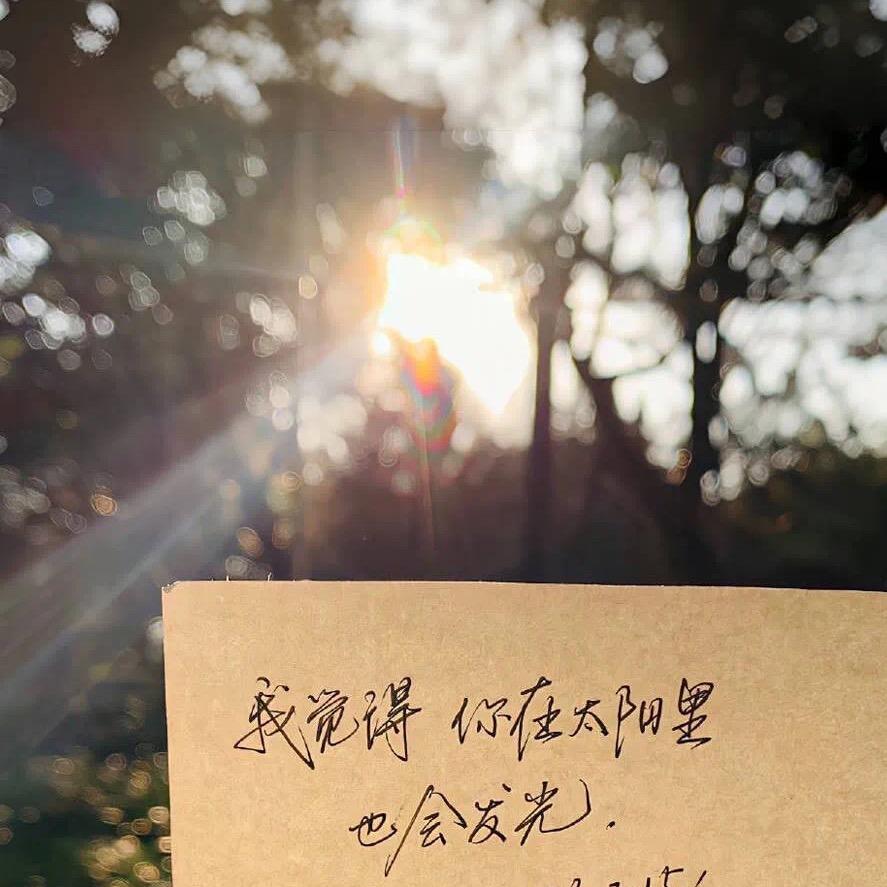 我觉得 你在太阳里
也会发光.